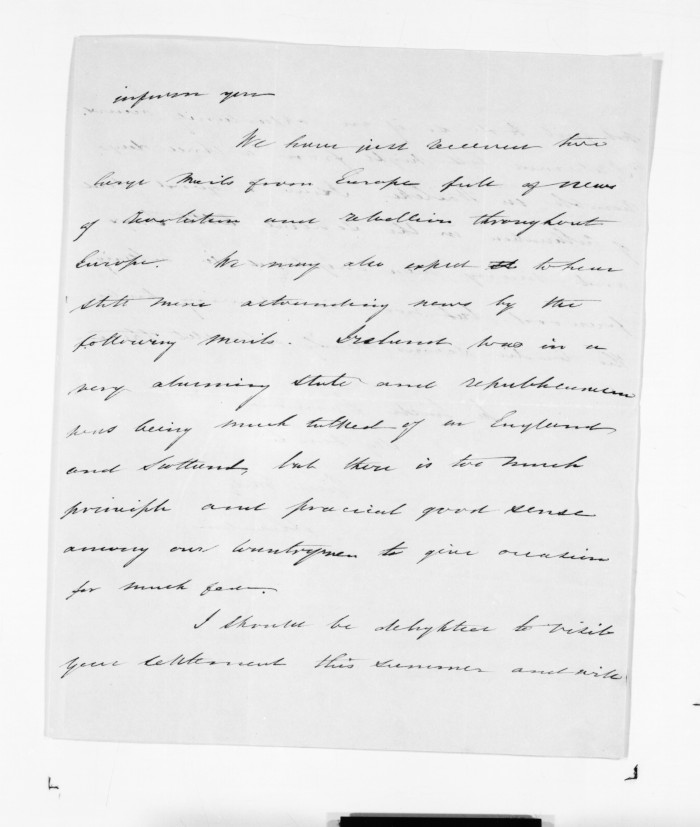 inform you
We have just received two
large Mails from Europe full of news
of Revolution and rebellion throughout
Europe. We may also expect to hear
still more astounding news by the
following mails. Ireland was in a
very alarming state and republicanism
was being much talked of in England
and Scotland, but there is too much
principle and pracical good sense
among our Countrymen to give occasion
for much fear.
I should be delighted to visit
your settlement this summer and will